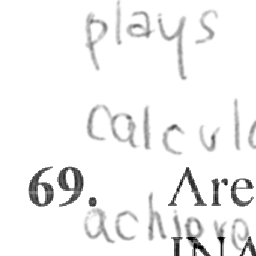 plays
calcul
69. Are
achieve
INA